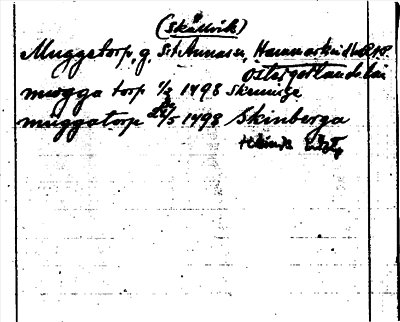 (Skällvik)
Muggetorp, g. S:t Annas sn, Hammarkinds hd
Östergötlands län
mwgga torp 1/2 1498 Skeninge
müggatorp 22/5 1498 Skinberga